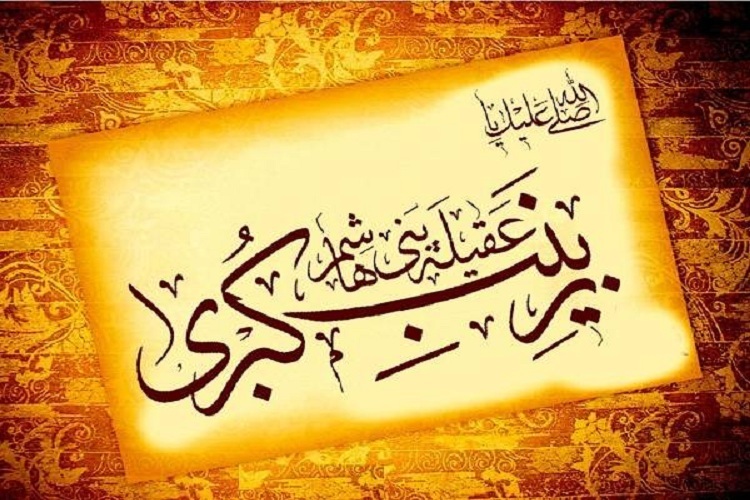 صلی الله علیک یا
عقیلة بنی هاشم
زینب کبری